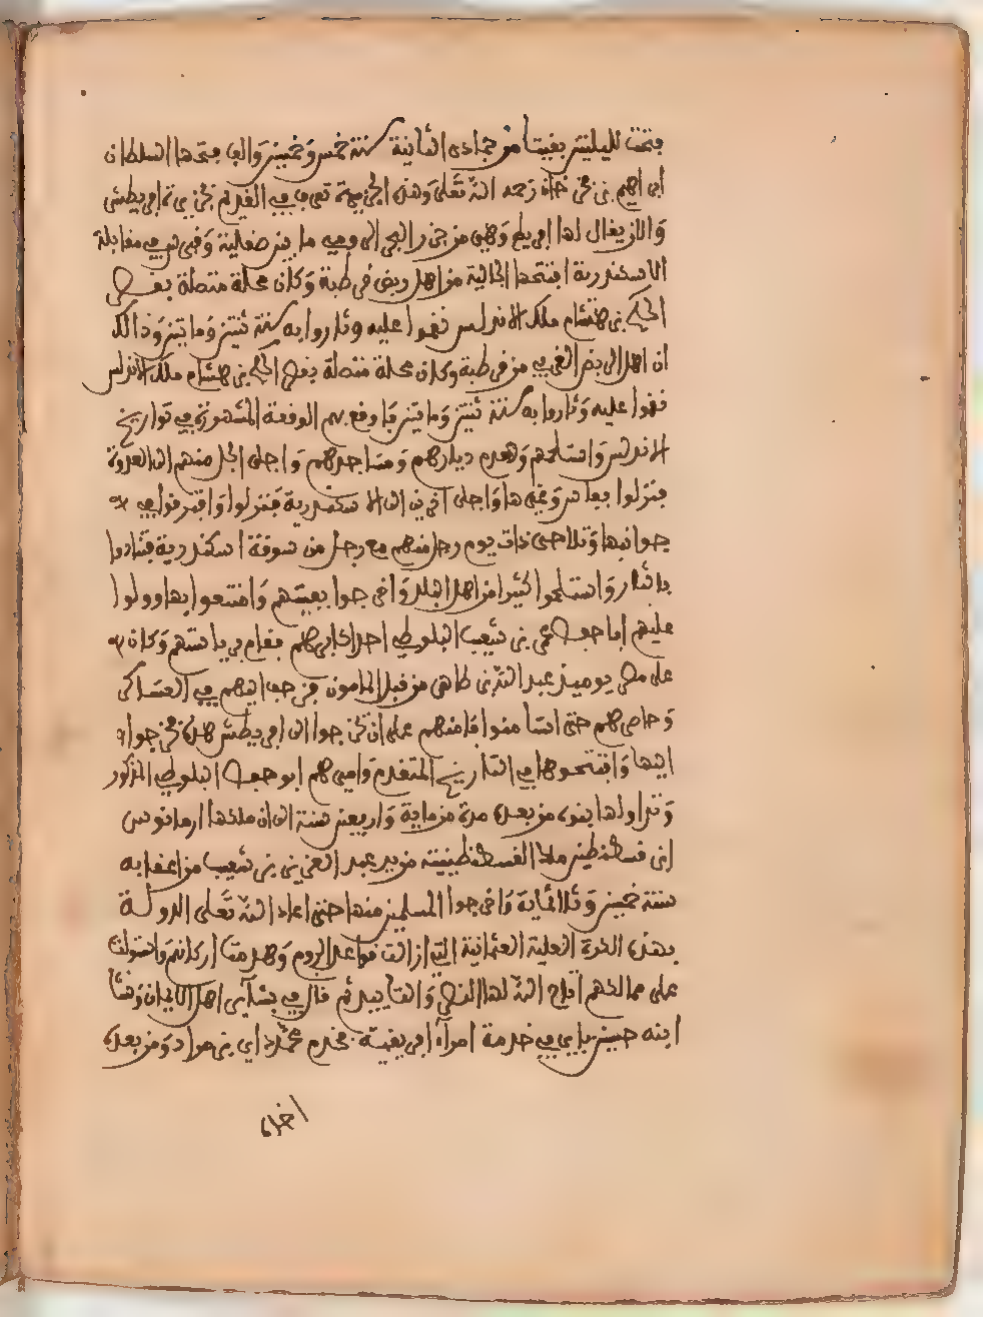 فتحت لليلتين بقيتا من جمادى الثانية سنة خمس وخمسين وألف فتحها السلطان
ابراهيم بن محمد خان رحمه الله تعلى وهذه الجزيرة تعرف في القديم بجزيرة اقريطش
والان يقال لها اقريط وهي من جزر البحر الرومي ما بين صقلية وقبرس في مقابلة
الاسكندرية افتتحها الجالية من اهل ربض قرطبة وكان محلة متصلة بقصر
الحكم بن هشام ملك الاندلس نقموا عليه وثاروا به سنة ثنتين ومايتين وذالك
ان اهل الربض الغربي من قرطبة وكان محلة متصلة بقصر الحكم بن هشام ملك الاندلس
نقموا عليه وثاروا به سنة ثنتين ومايتين فاوقع بهم الوقعة المشهورة في تواريخ
الاندلس واستلحمهم وهدم ديارهم ومساجدهم واجلى الجل منهم الى العدوة
فنزلوا بفاس وغيرها واجلى اخرين الى الاسكندرية فنزلوا وافترقوا في
جوانبها وتلاحى ذات يوم رجل منهم مع رجل من سوقة اسكندرية فتنادوا
بالثار واستلحموا كثيرا من اهل البلد واخرجوا بقيتهم وامتنعوا بها وولوا
عليهم ابا حفص عمر بن شعيب البلوطي احد اكابرهم فقام برياستهم وكان
على مصر يوميذ عبد الله بن طاهر من قبل المامون فزحف اليهم في العساكر
وحاصرهم حتى استامنوا فامنهم على ان يخرجوا الى اقريطش هذه فخرجوا
اليها وافتتحوها في التاريخ المتقدم واميرهم ابو حفص البلوطي المذكور
وتداولها بنوه من بعده مدة من ماية واربعين سنة الى ان ملكها ارمانوس
ابن قسطنطين ملك القسطنطينية من يد عبد العزيز بن شعيب من اعقابه
سنة خمسين وثلاثماية واخرجوا المسلمين منها حتى اعاد الله تعلى الدولة
بهذه الدولة العلية العثمانية التي ازالت قواعد الروم وهدمت اركانهم واستولت
على ممالكهم ادام الله لها النصر والتاييد ثم قال في بشاير اهل الايمان ونشا
ابنه حسين باي في خدمة امراء افريقية فخدم محمد باي بن مراد ومن بعده
اخاه